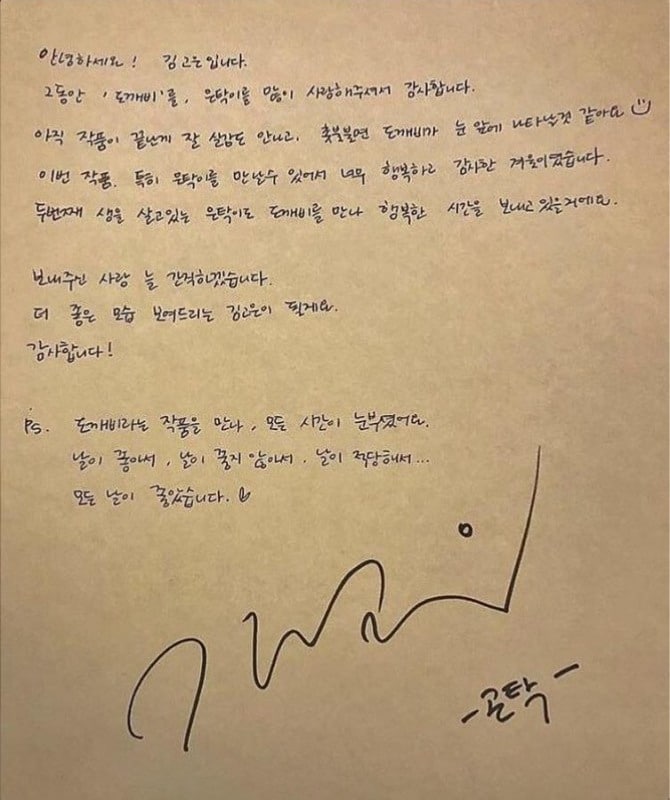 안녕하세요! 김고은입니다.
그동안 '도깨비'를, 은탁이를 많이 사랑해주셔서 감사합니다.
아직 작품이 끝난게 잘 실감도 안나고, 훅불불면 도깨비가 눈 앞에 나타날것 같아요
이번 작품, 특히 은탁이를 만날수 있어서 너무 행복하고 감사한 겨울이였습니다.
두번째 생을 살고있는 은탁이도 도깨비를 만나 행복한 시간을 보내고 있을거에요.
보내주신 사랑 늘 간직하겠습니다.
더 좋은 모습 보여드리는 김고은이 될게요.
감사합니다!
PS. 도깨비라는 작품을 만나, 모든 시간이 눈부셨어요.
날이 좋아서, 날이 좋지 않아서, 날이 적당해서...
모든 날이 좋았습니다.